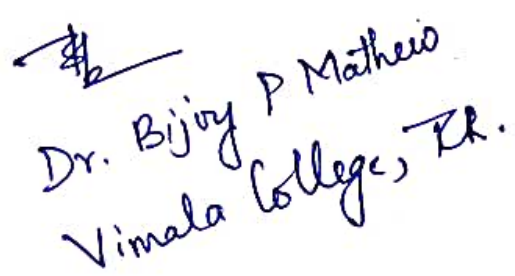 Dr. Bijoy P Mathew
Vimala College, TCR.